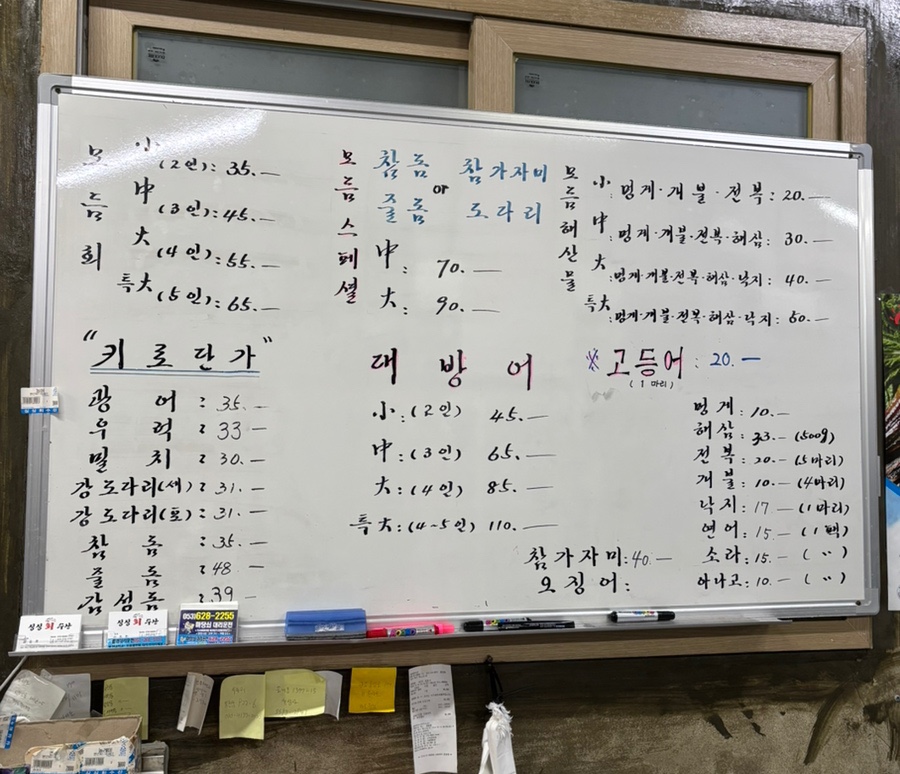 모듬회
小 (2인): 35.—
中 (3인): 45.—
大 (4인): 55.—
특大 (5인): 65.—
모듬스페셜
참돔 참가자미
or
줄돔 도다리
中: 70.—
大: 90.—
모듬해산물
小: 멍게·개불·전복: 20.—
中: 멍게·개불·전복·해삼: 30.—
大: 멍게·개불·전복·해삼·낙지: 40.—
특大: 멍게·개불·전복·해삼·낙지: 50.—
"키로단가"
광어: 35.—
우럭: 33—
밀치: 30.—
강도다리(세): 31.—
강도다리(포): 31.—
참돔: 35.—
줄돔: 48.—
감성돔: 39—
대방어
小: (2인) 45.—
中: (3인) 65.—
大: (4인) 85.—
특大: (4~5인) 110.—
※ 고등어: 20.—
(1마리)
멍게: 10.—
해삼: 33.— (500g)
전복: 20.— (5마리)
개불: 10.— (4마리)
낙지: 17— (1마리)
연어: 15.— (1팩)
소라: 15.— (〃)
아나고: 10.— (〃)
참가자미: 40.—
오징어:
싱싱회수산
싱싱회수산
(053)628-2255
대리운전